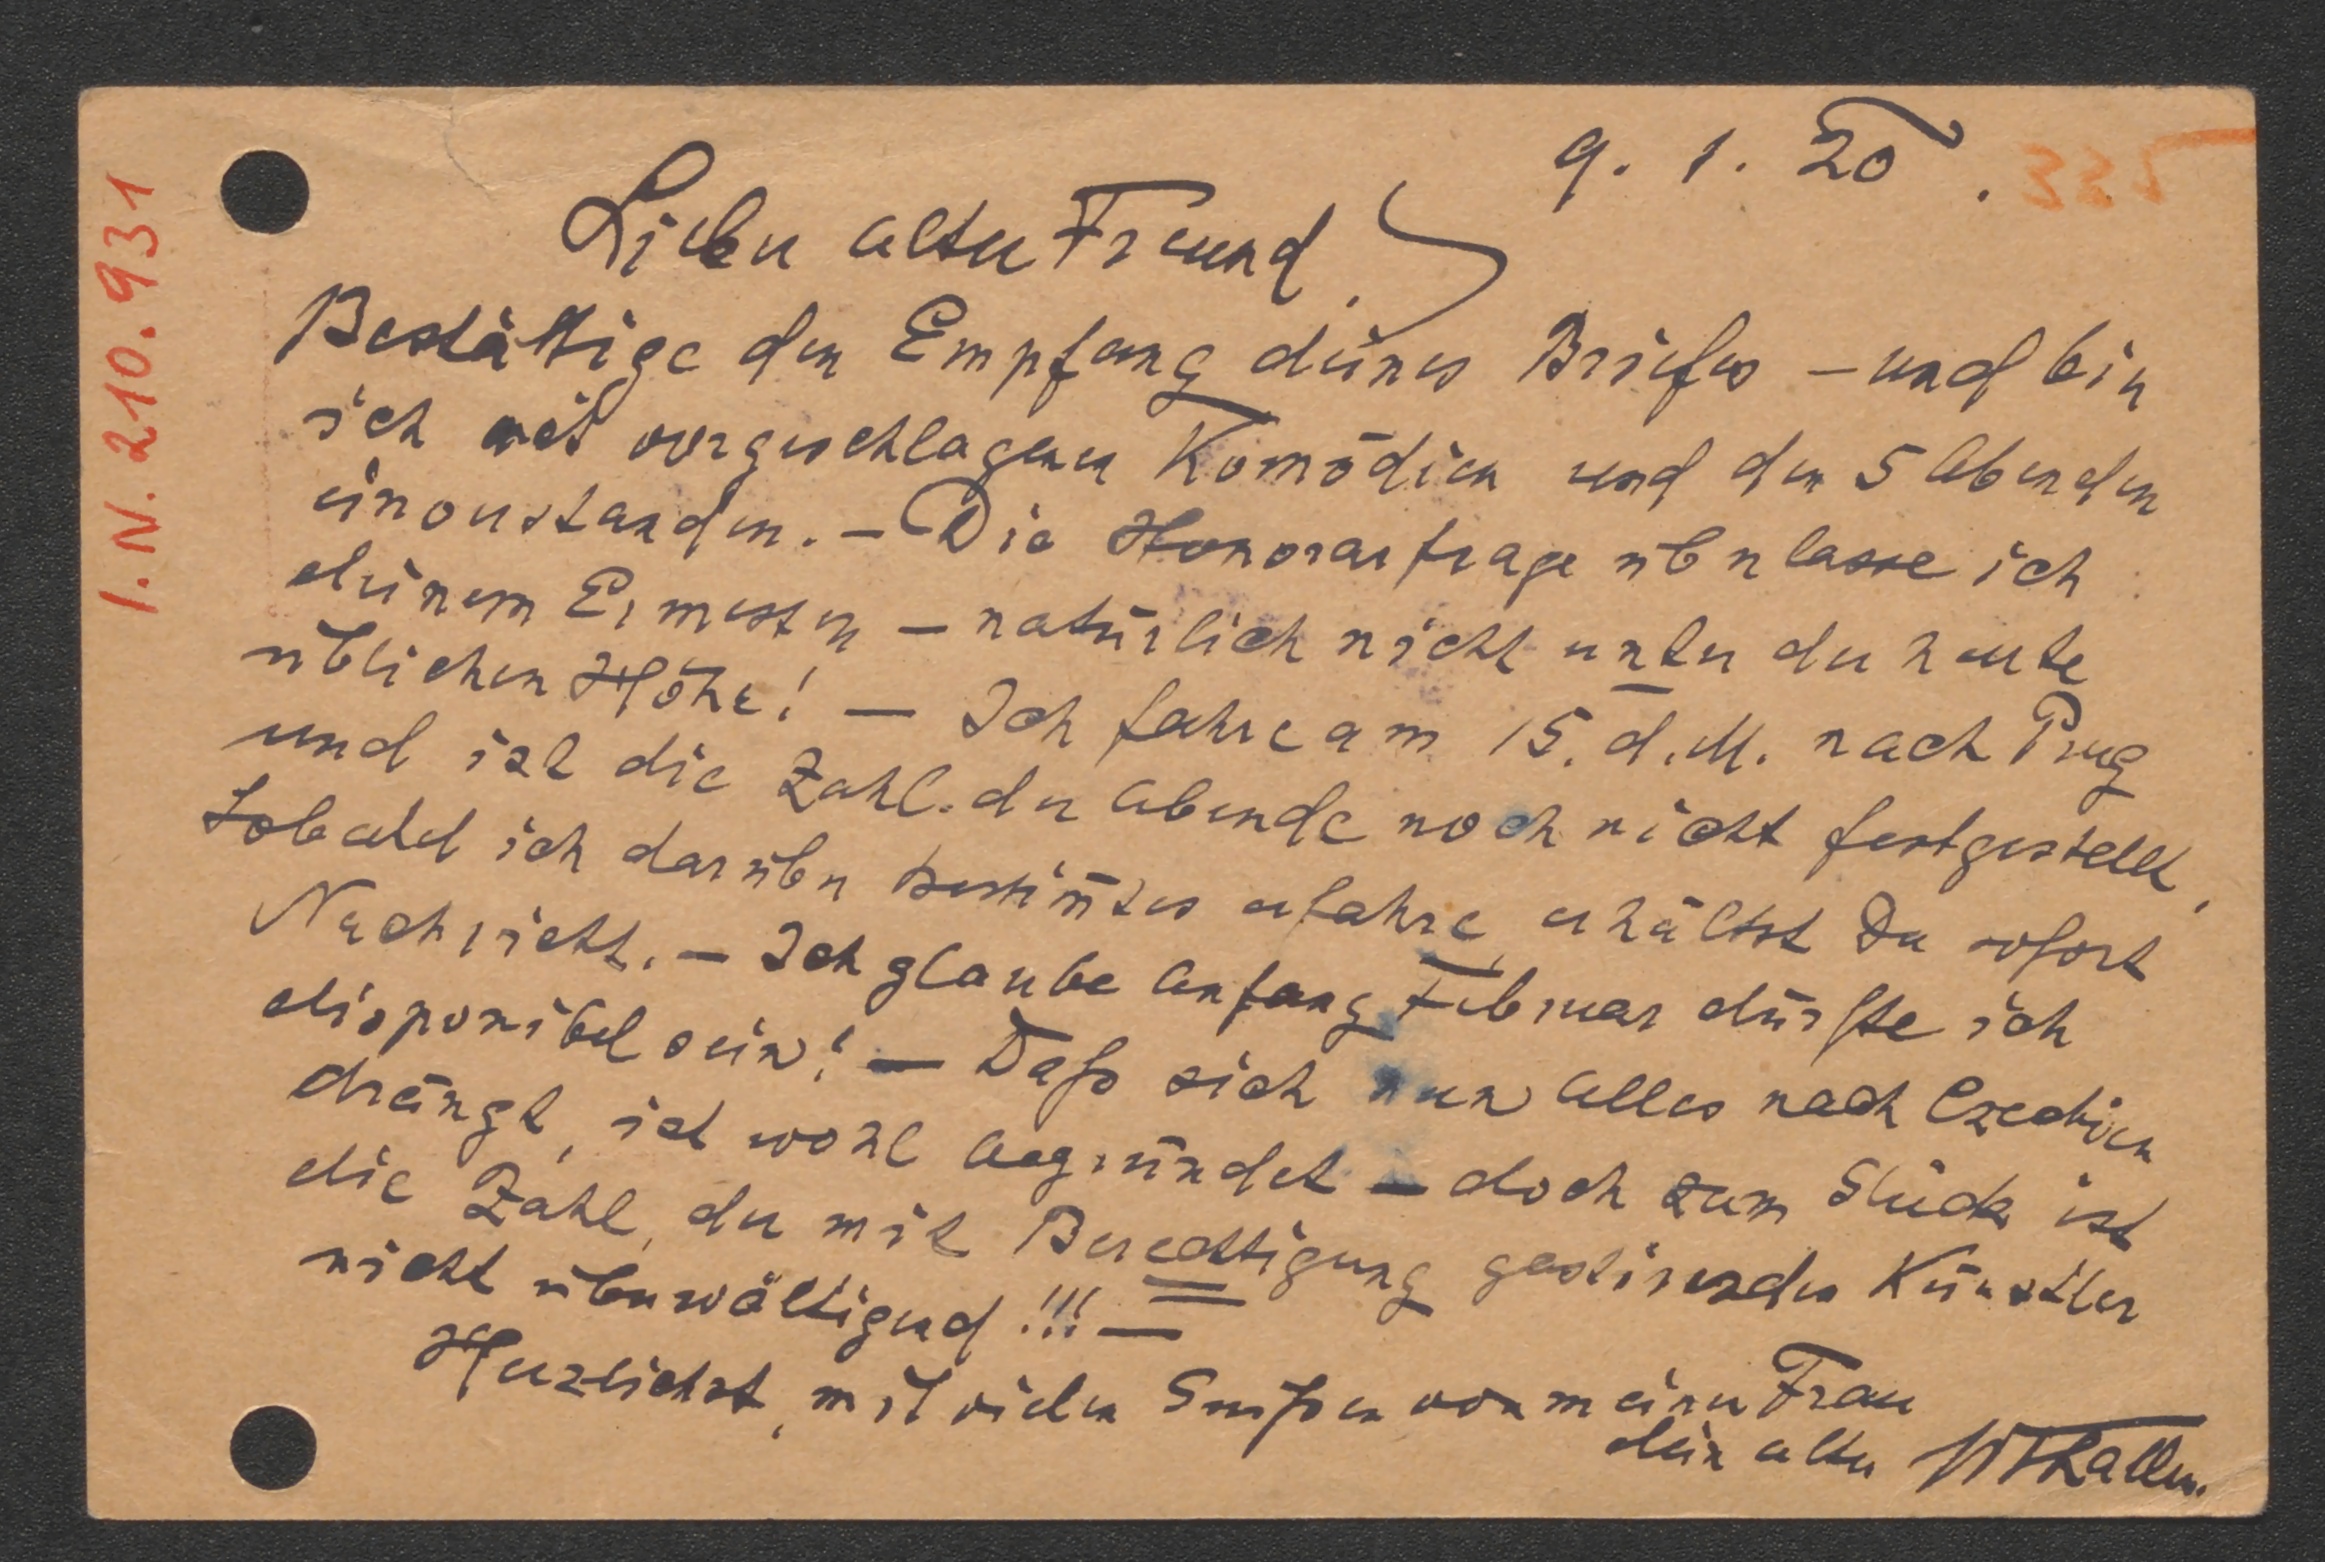 9. 1. 20.
335
I.N. 210.931
Lieber alter Freund!
Bestättige den Empfang deines Briefes – und bin
ich mit vorgeschlagenen Komödien und den 5 Abenden
einverstanden. – Die Honorarfrage überlasse ich
deinem Ermessen – natürlich nicht unter der heute
üblichen Höhe! – Ich fahre am 15. d. M. nach Prag
und ist die Zahl der Abende noch nicht festgestellt,
Sobald ich darüber bestim̄tes erfahre, erhältst Du sofort
Nachricht. – Ich glaube Anfang Februar dürfte ich
disponibel sein! – Daß sich nun Alles nach Czechien
drängt, ist wohl begründet – doch zum Glück ist
die Zahl, der mit Berechtigung gastirender Künstler
nicht überwältigend!!! –
Herzlichst, mit vielen Grüßen von meiner Frau
dein alter WThaller.